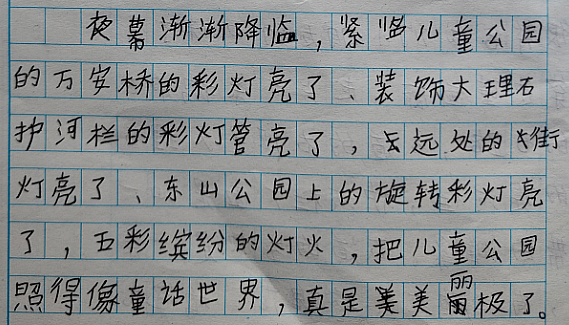 夜幕渐渐降临，紧临儿童公园
的万安桥的彩灯亮了、装饰大理石
护河栏的彩灯管亮了，远处的街
灯亮了、东山公园上的旋转彩灯亮
了，五彩缤纷的灯火，把儿童公园
照得像童话世界，真是美丽极了。